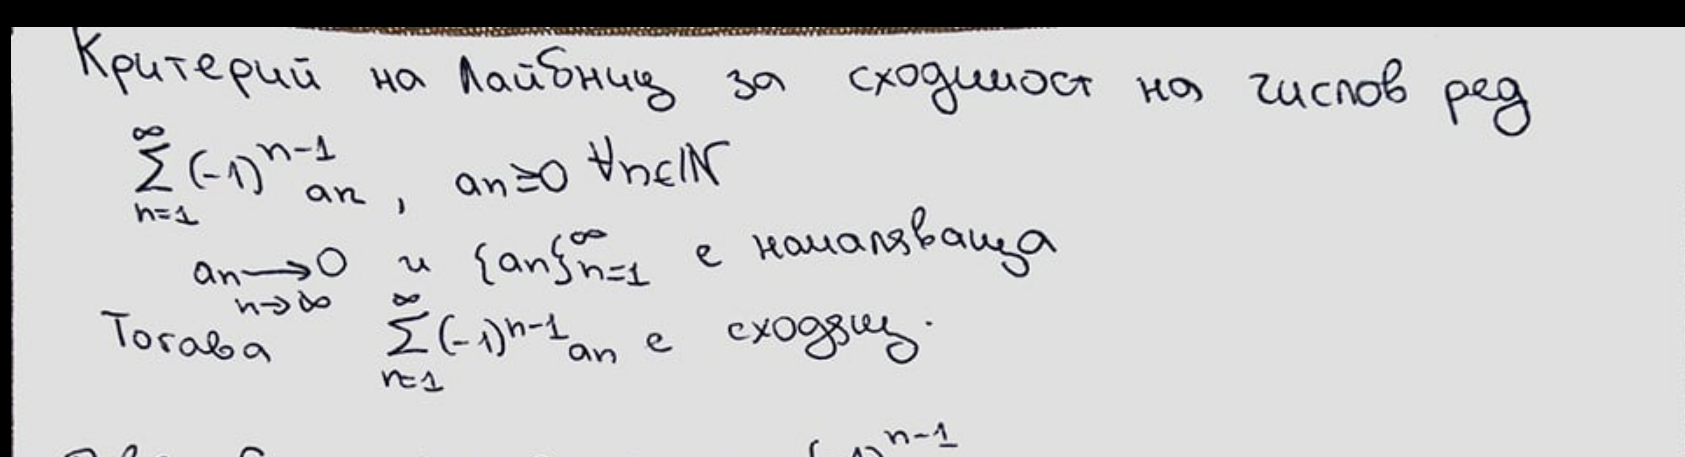 Критерий на Лайбниц за сходимост на числов ред
∞∑n=1 (-1)^{n-1} an , an≥0 ∀n∈ℕ
an→0 n→∞ и {an}∞n=1 е намаляваща
Тогава ∞∑n=1 (-1)^{n-1} an е сходящ.
n-1